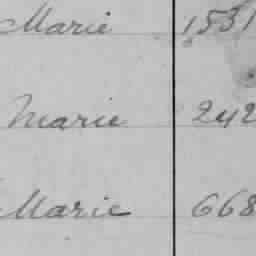 Marie 1531
Marie 242
Marie 668